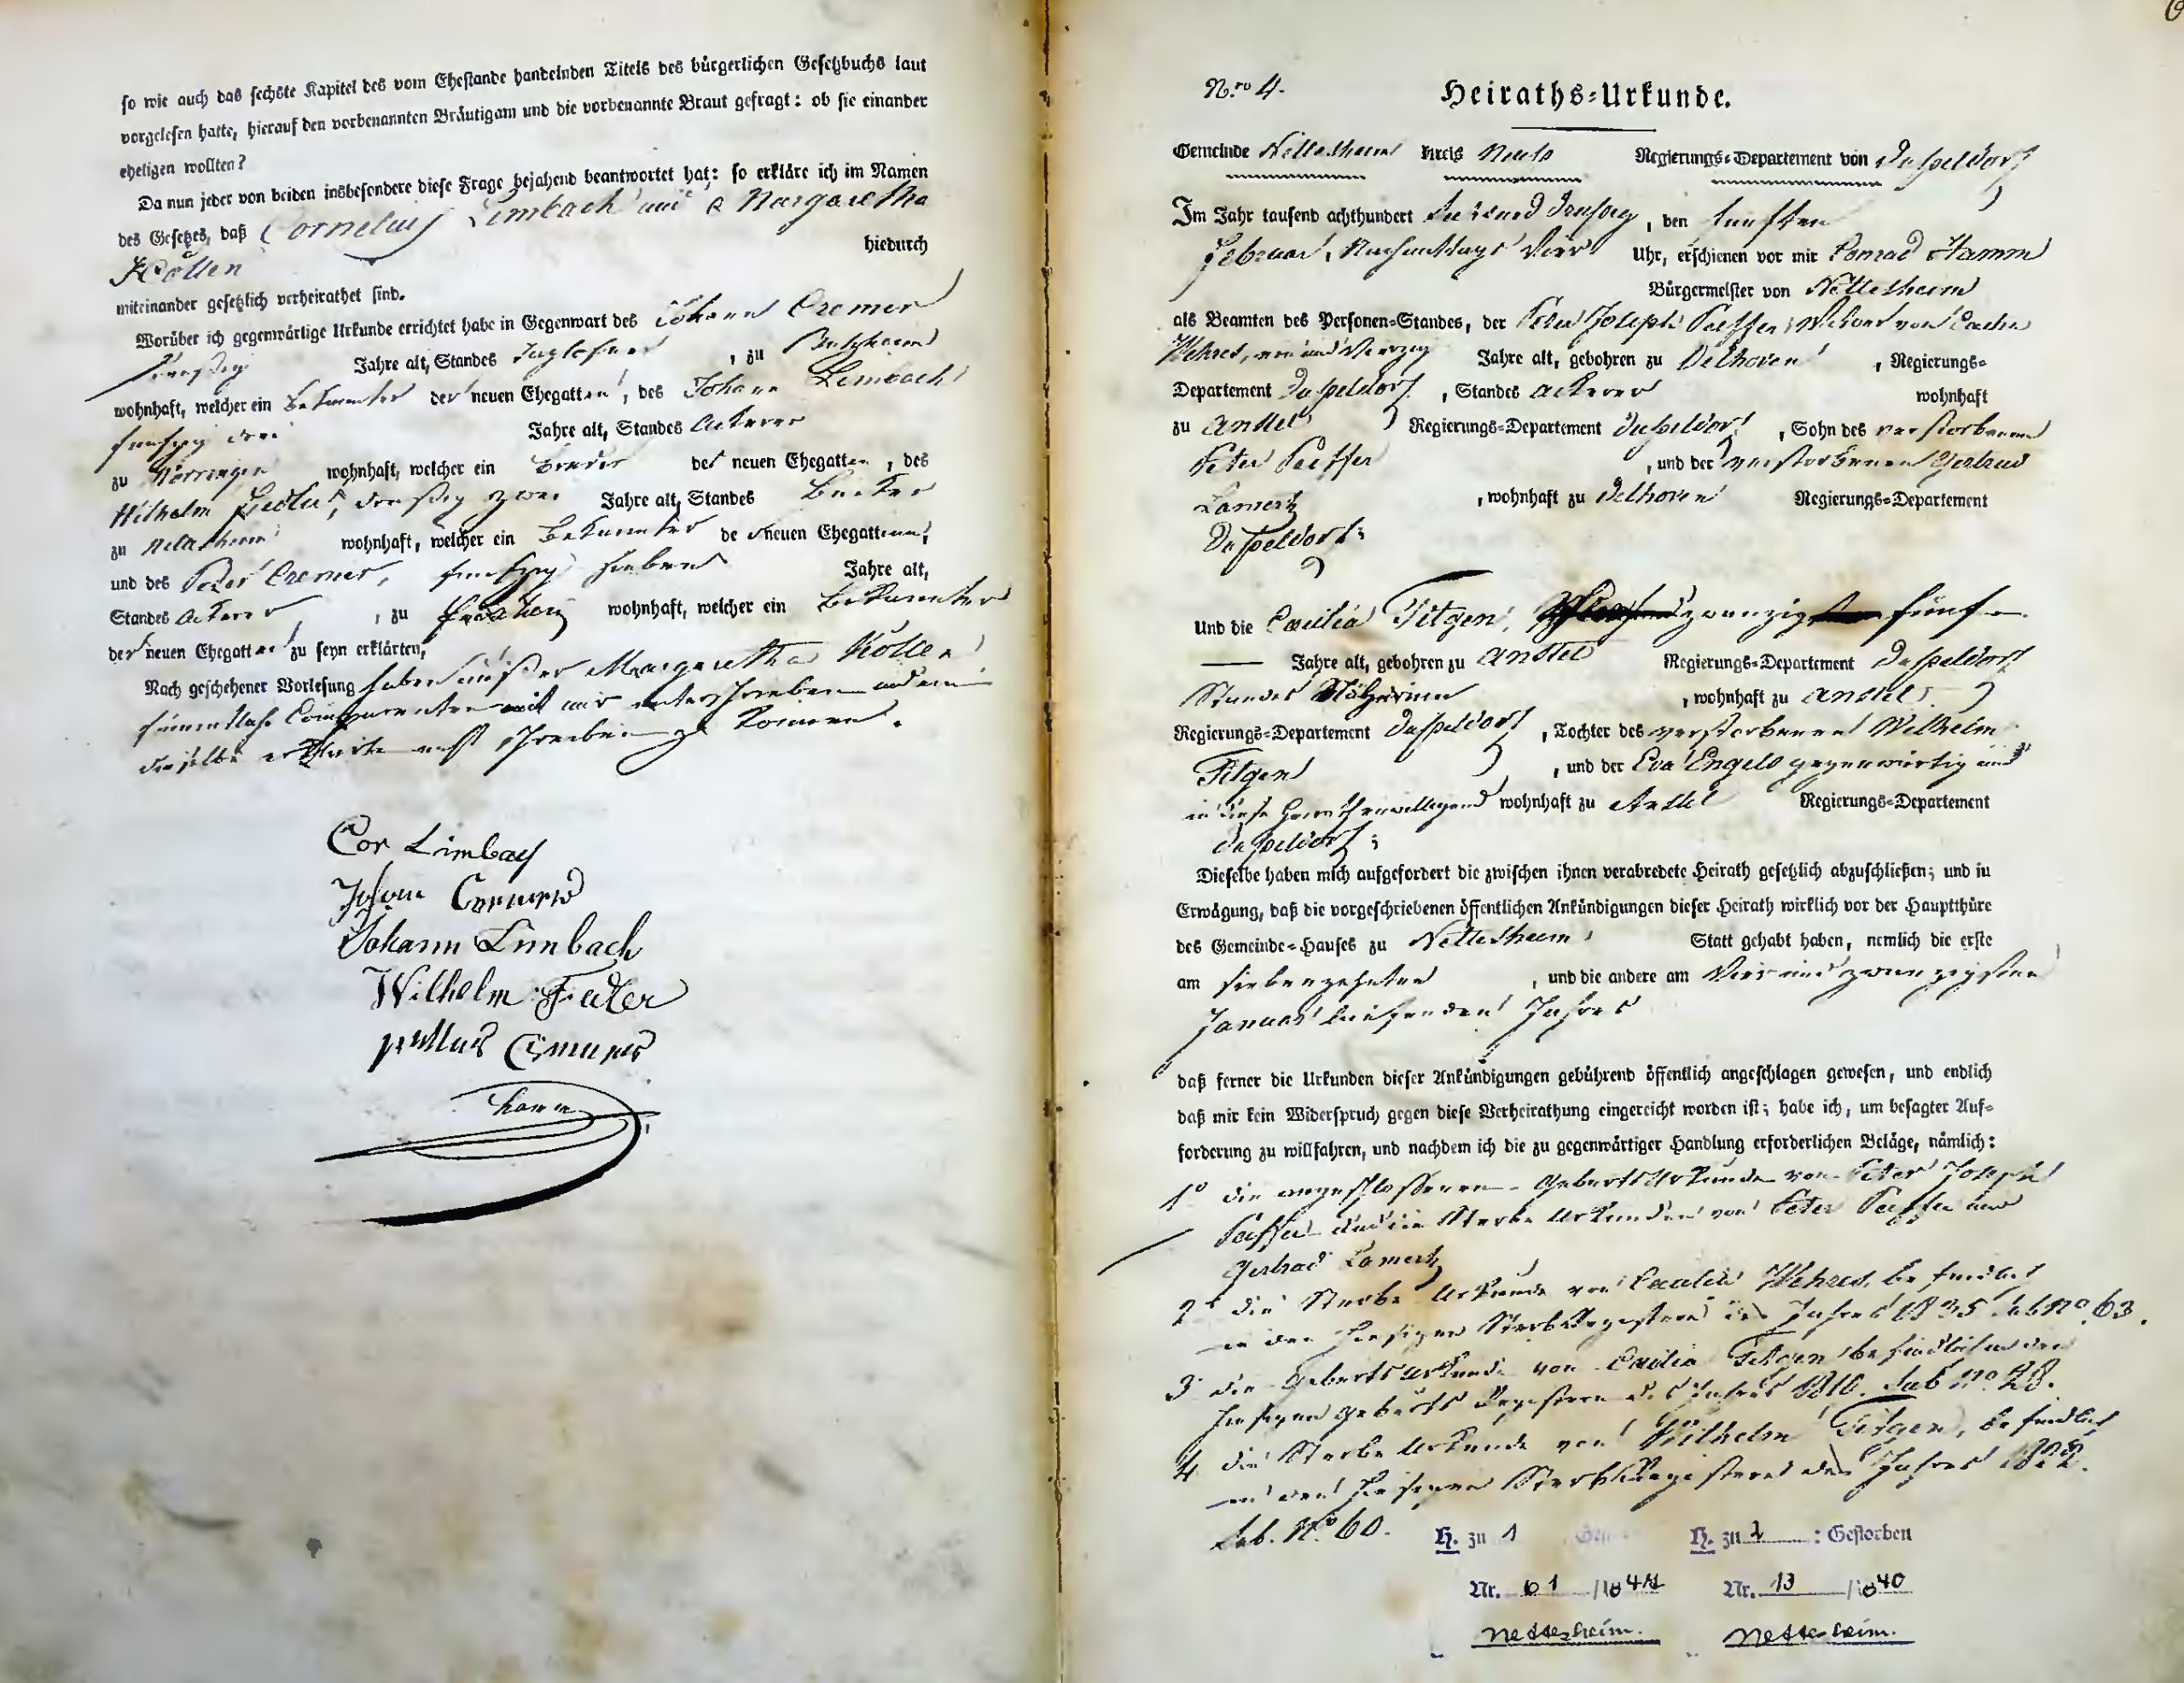 so wie auch das sechste Kapitel des vom Ehestande handelnden Titels des bürgerlichen Gesetzbuchs laut
vorgelesen hatte, hierauf den vorbenannten Bräutigam und die vorbenannte Braut gefragt: ob sie einander
ehetigen wollten?
Da nun jeder von beiden insbesondere diese Frage bejahend beantwortet hat: so erkläre ich im Namen
des Gesetzes, daß Cornelius Limbach und Margaretha
Kollen hiedurch
miteinander gesetzlich verheirathet sind.
Worüber ich gegenwärtige Urkunde errichtet habe in Gegenwart des Johann Cremer
dreißig Jahre alt, Standes Taglöhner, zu Butzheim
wohnhaft, welcher ein Bekannter der neuen Ehegatten, des Johann Limbach
funfzig drei Jahre alt, Standes Ackerer
zu wohnhaft, welcher ein Bruder des neuen Ehegatten, des
Wilhelm Fiedler, dreißig zwei Jahre alt, Standes
zu wohnhaft, welcher ein Bekannter der neuen Ehegatten,
und des Peter Cremer, funfzig sieben Jahre alt,
Standes Ackerer, zu wohnhaft, welcher ein Bekannter
der neuen Ehegatten zu seyn erklärten,
Nach geschehener Vorlesung haben außer Margaretha Kollen
sämmtliche Comparenten mit mir unterschrieben indem
dieselbe erklärte nicht schreiben zu können.
Cor Limbach
Johann Cremer
Johann Limbach
Wilhelm Fiedler
Cremer
Hamm
Nro 4.
Heiraths-Urkunde.
Gemeinde Nettesheim Kreis Neuss Regierungs-Departement von Düsseldorf
Im Jahr tausend achthundert sechs und dreißig, den fünften
Februar, Nachmittags vier Uhr, erschienen vor mir Conrad Hamm
Bürgermeister von Nettesheim
als Beamten des Personen-Standes, der Peter Joseph Peiffer, Witwer von Cäcilia
Wehres, und vierzig Jahre alt, gebohren zu Delhoven, Regierungs-
Departement Düsseldorf, Standes Ackerer wohnhaft
zu Anstel Regierungs-Departement Düsseldorf, Sohn des verstorbenen
Peter Peiffer, und der verstorbenen Gertrud
Lamertz, wohnhaft zu Delhoven Regierungs-Departement
Düsseldorf;
Und die Caecilia Titgen, zwanzig fünf
Jahre alt, gebohren zu Anstel Regierungs-Departement Düsseldorf
Standes Näherinn, wohnhaft zu Anstel
Regierungs-Departement Düsseldorf, Tochter des verstorbenen Wilhelm
Titgen, und der Eva Engels gegenwärtig und
in diese Heirath einwilligend wohnhaft zu Anstel Regierungs-Departement
Düsseldorf;
Dieselbe haben mich aufgefordert die zwischen ihnen verabredete Heirath gesetzlich abzuschließen; und in
Erwägung, daß die vorgeschriebenen öffentlichen Ankündigungen dieser Heirath wirklich vor der Hauptthüre
des Gemeinde-Hauses zu Nettesheim Statt gehabt haben, nemlich die erste
am siebenzehnten, und die andere am vier und zwanzigsten
Januar laufenden Jahres
daß ferner die Urkunden dieser Ankündigungen gebührend öffentlich angeschlagen gewesen, und endlich
daß mir kein Widerspruch gegen diese Verheirathung eingereicht worden ist; habe ich, um besagter Auf-
forderung zu willfahren, und nachdem ich die zu gegenwärtiger Handlung erforderlichen Beläge, nämlich:
1° die angeschlossenen Geburts Urkunde von Peter Joseph
Peiffer und die Sterbe Urkunden von Peter Peiffer und
Gertrud Lamertz
2° die Sterbe Urkunde von Caecilia Wehres, befindlich
in den hiesigen Sterb Registern des Jahres 1835 sub No 63.
3 die Geburts Urkunde von Caecilia Titgen befindlich in den
hiesigen Geburts Registern des Jahres 1810. sub No 28.
4 die Sterbe Urkunde von Wilhelm Titgen, befindlich
in den hiesigen Sterb Registern des Jahres 1822.
sub. No 60.
H. zu 1 H. zu 2 : Gestorben
Nr. 61 /1844 Nr. 13 /1840
Nettesheim. Nettesheim.